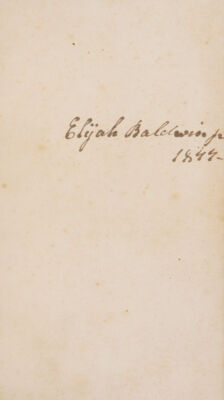 Elijah Baldwin jr
1844-